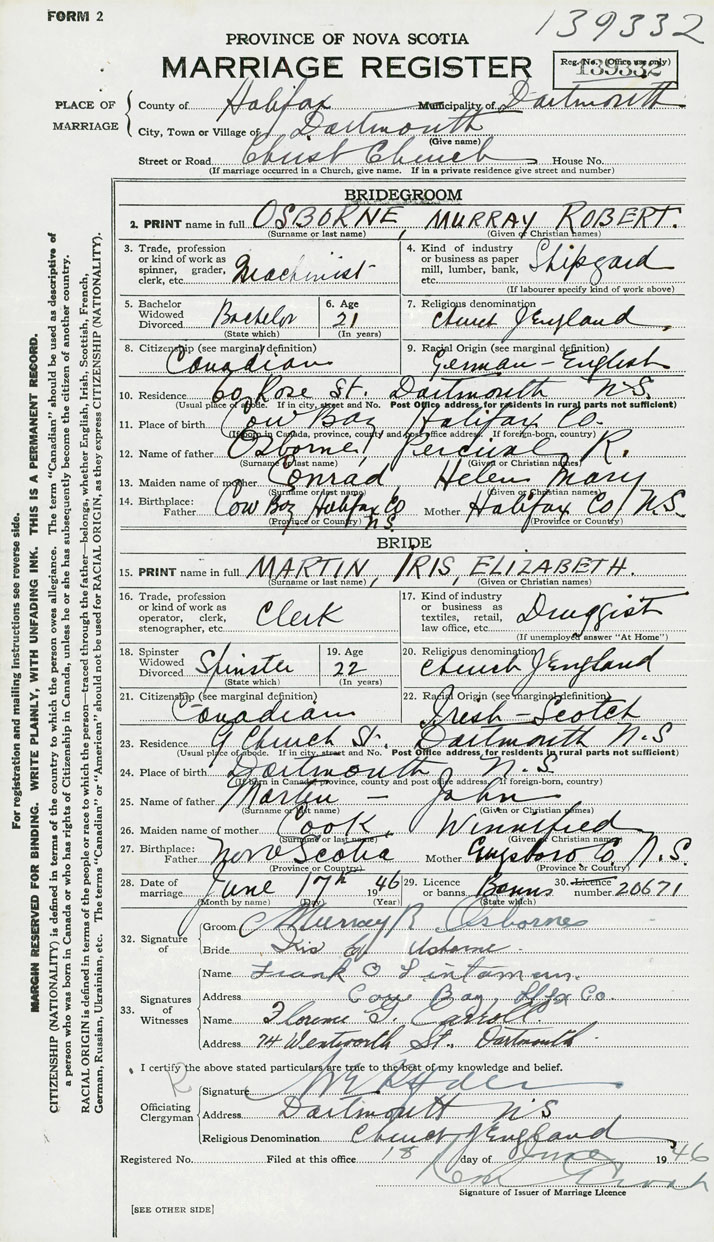 FORM 2
139332
PROVINCE OF NOVA SCOTIA
MARRIAGE REGISTER
Reg. No. (Office use only)
139332
PLACE OF MARRIAGE
County of Halifax Municipality of Dartmouth
City, Town or Village of Dartmouth
(Give name)
Street or Road Christ Church House No.
(If marriage occurred in a Church, give name. If in a private residence give street and number)
BRIDEGROOM
2. PRINT name in full OSBORNE, MURRAY ROBERT.
(Surname or last name) (Given or Christian names)
3. Trade, profession or kind of work as spinner, grader, clerk, etc. Machinist
4. Kind of industry or business as paper mill, lumber, bank, etc. Shipyard
(If labourer specify kind of work above)
5. Bachelor Widowed Divorced Bachelor (State which)
6. Age 21 (In years)
7. Religious denomination Church of England
8. Citizenship (see marginal definition) Canadian
9. Racial Origin (see marginal definition) German - English
10. Residence 60 Rose St. Dartmouth N.S.
(Usual place of abode. If in city, street and No. Post Office address, for residents in rural parts not sufficient)
11. Place of birth Cow Bay Halifax Co.
(If born in Canada, province, county and post office address. If foreign-born, country)
12. Name of father Osborne, Percival R.
(Surname or last name) (Given or Christian names)
13. Maiden name of mother Conrad Helen Mary
(Surname or last name) (Given or Christian names)
14. Birthplace: Father Cow Bay Halifax Co N.S. Mother Halifax Co N.S.
(Province or Country) (Province or Country)
BRIDE
15. PRINT name in full MARTIN, IRIS, ELIZABETH.
(Surname or last name) (Given or Christian names)
16. Trade, profession or kind of work as operator, clerk, stenographer, etc. Clerk
17. Kind of industry or business as textiles, retail, law office, etc. Druggist
(If unemployed answer "At Home")
18. Spinster Widowed Divorced Spinster (State which)
19. Age 22 (In years)
20. Religious denomination Church of England
21. Citizenship (see marginal definition) Canadian
22. Racial Origin (see marginal definition) Irish Scotch
23. Residence 9 Church St. Dartmouth N.S
(Usual place of abode. If in city, street and No. Post Office address, for residents in rural parts not sufficient)
24. Place of birth Dartmouth N.S.
(If born in Canada, province, county and post office address. If foreign-born, country)
25. Name of father Martin - John
(Surname or last name) (Given or Christian names)
26. Maiden name of mother Cook, Winnifred
(Surname or last name) (Given or Christian names)
27. Birthplace: Father Nova Scotia Mother Co, N.S.
(Province or Country) (Province or Country)
28. Date of marriage June 17th 1946
(Month by name) (Day) (Year)
29. Licence or banns Banns (State which)
30. Licence number 20671
32. Signature of
Groom Murray R Osborne
Bride Iris Osborne
33. Signatures of Witnesses
Name Frank O
Address Cow Bay, Hfx Co.
Name Florence Carroll
Address 74 Wentworth St., Dartmouth
I certify the above stated particulars are true to the best of my knowledge and belief.
Officiating Clergyman
Signature
Address Dartmouth NS
Religious Denomination Church of England
Registered No. Filed at this office 18 day of June 1946
Signature of Issuer of Marriage Licence
[SEE OTHER SIDE]
For registration and mailing instructions see reverse side.
MARGIN RESERVED FOR BINDING. WRITE PLAINLY, WITH UNFADING INK. THIS IS A PERMANENT RECORD.
CITIZENSHIP (NATIONALITY) is defined in terms of the country to which the person owes allegiance. The term "Canadian" should be used as descriptive of
a person who was born in Canada or who has rights of Citizenship in Canada, unless he or she has subsequently become the citizen of another country.
RACIAL ORIGIN is defined in terms of the people or race to which the person—traced through the father—belongs, whether English, Irish, Scottish, French,
German, Russian, Ukrainian, etc. The terms "Canadian" or "American" should not be used for RACIAL ORIGIN, as they express CITIZENSHIP (NATIONALITY).